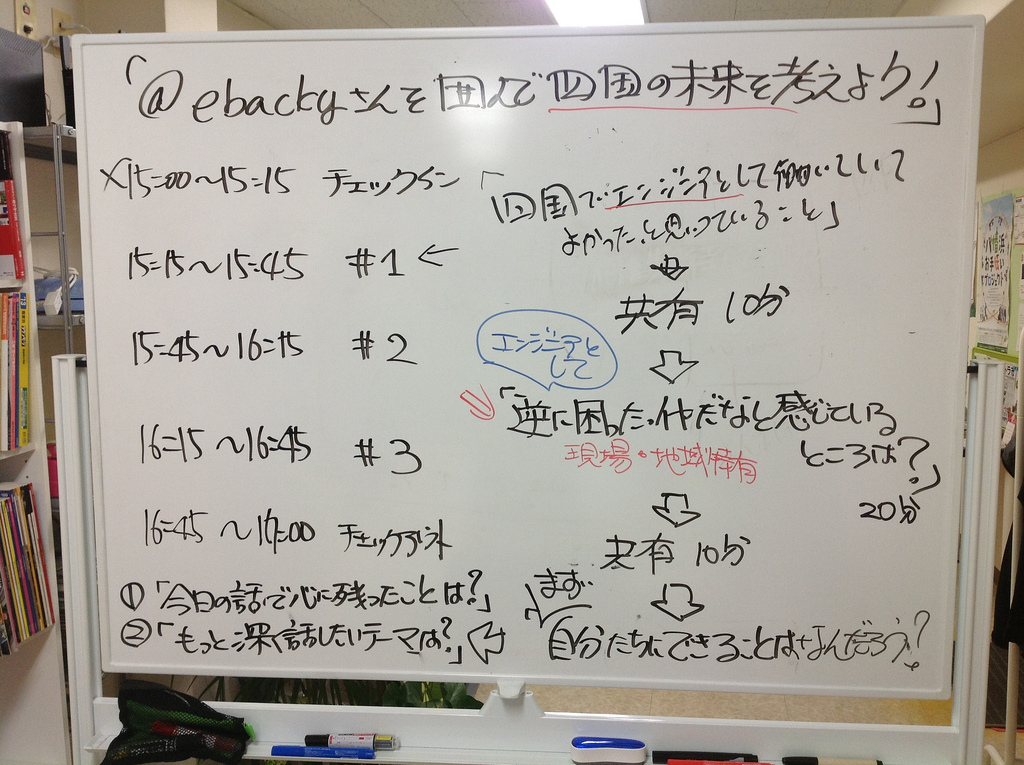 「@ebackyさんを囲んで四国の未来を考えよう!」
×15:00〜15:15 チェックイン
15:15〜15:45 #1 ←
15:45〜16:15 #2
16:15〜16:45 #3
16:45〜17:00 チェックアウト
①「今日の話で心に残ったことは?」
②「もっと深く話したいテーマは?」
「四国でエンジニアとして働いていて
よかったと思っていること」
共有 10分
エンジニアと
して
「逆に困った・イヤだなと感じている
ところは?」
現場・地域特有
20分
共有 10分
まず
自分たちにできることはなんだろう?